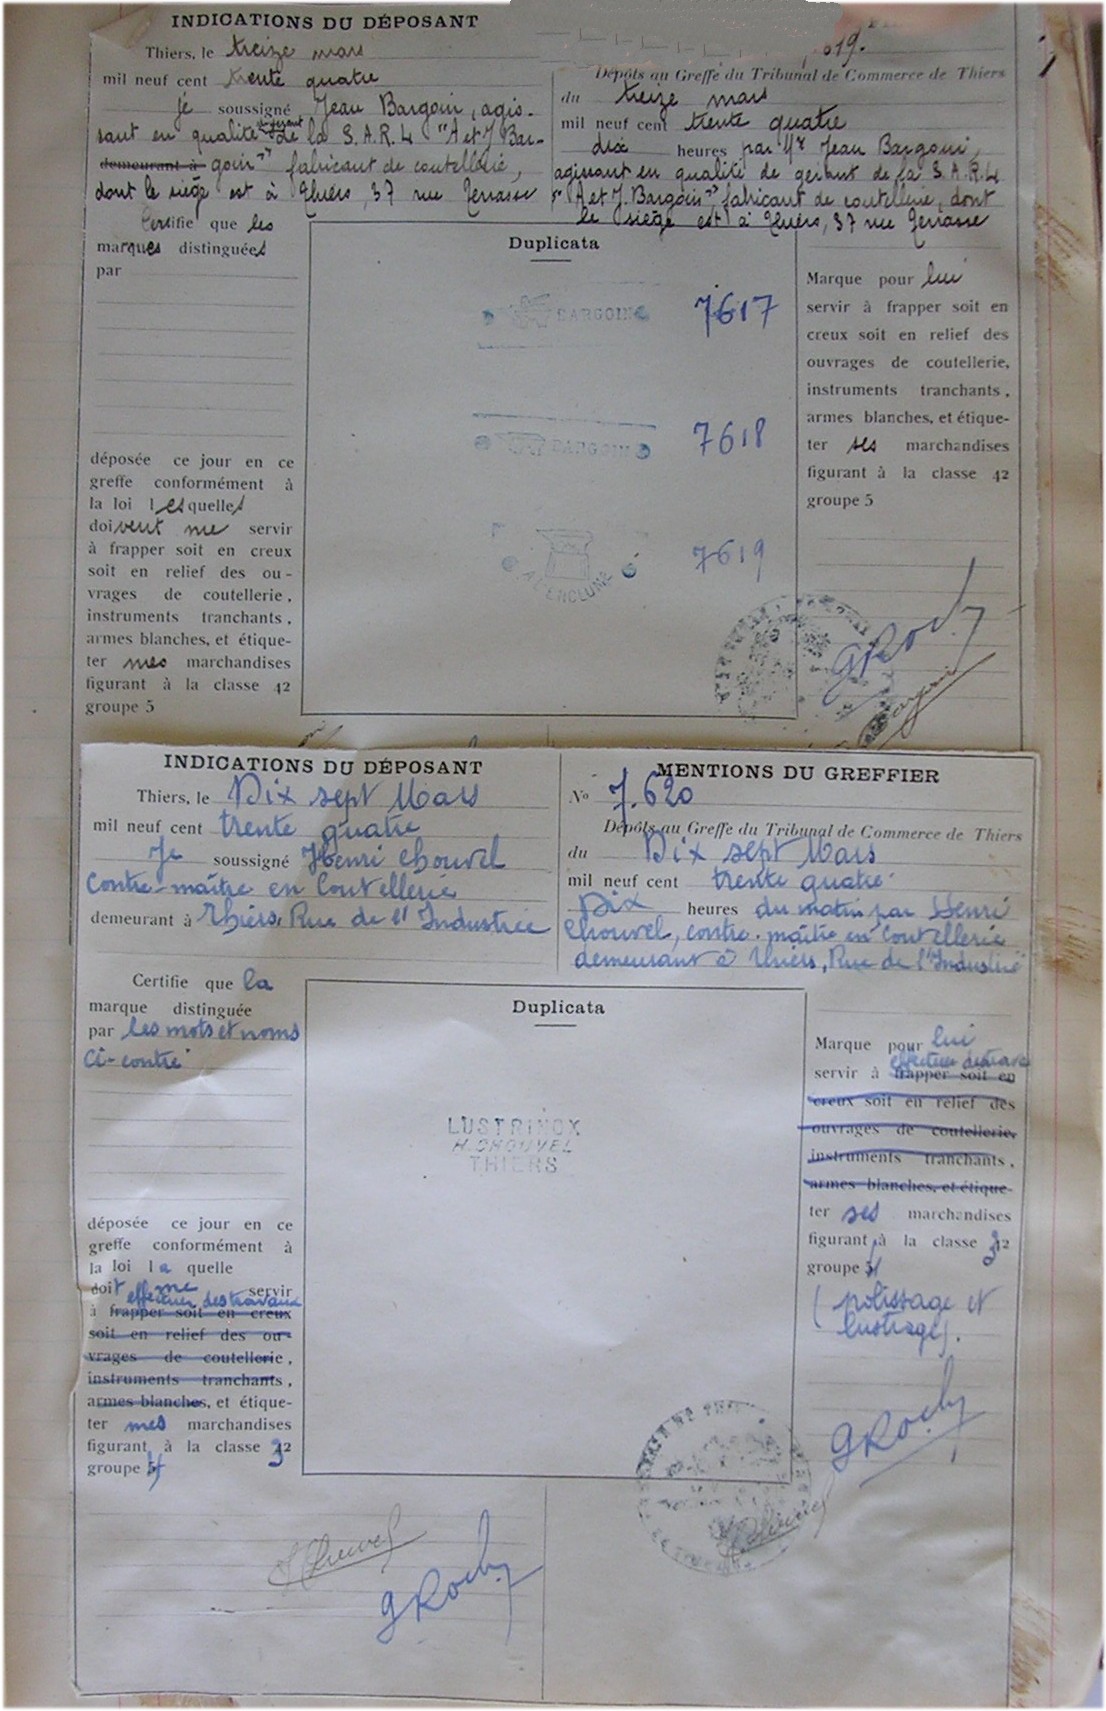 INDICATIONS DU DÉPOSANT
Thiers, le treize mars
mil neuf cent trente quatre
je soussigné Jean Bargoin, agis-
sant en qualité de gérant de la S.A.R.L "A et J Bar-
demeurant à goin" fabricant de coutellerie,
dont le siège est à Thiers, 37 rue Terrasse
Certifie que les
marques distinguées
par
déposée ce jour en ce
greffe conformément à
la loi lesquelles
doivent me servir
à frapper soit en creux
soit en relief des ou-
vrages de coutellerie,
instruments tranchants,
armes blanches, et étique-
ter mes marchandises
figurant à la classe 42
groupe 5
Duplicata
BARGOIN 7617
BARGOIN 7618
A L'ENCLUME 7619
619.
Dépôts au Greffe du Tribunal de Commerce de Thiers
du treize mars
mil neuf cent trente quatre
dix heures par Mr Jean Bargoin,
agissant en qualité de gérant de la S.A.R.L
"A et J. Bargoin" fabricant de coutellerie, dont
le siège est à Thiers, 37 rue Terrasse
Marque pour lui
servir à frapper soit en
creux soit en relief des
ouvrages de coutellerie,
instruments tranchants,
armes blanches, et étique-
ter ses marchandises
figurant à la classe 42
groupe 5
GRochy
Bargoin
INDICATIONS DU DÉPOSANT
Thiers, le Dix sept Mars
mil neuf cent trente quatre
Je soussigné Henri Chouvel
Contre-maître en Coutellerie
demeurant à Thiers, Rue de l'Industrie
Certifie que la
marque distinguée
par les mots et noms
Ci-contre
déposée ce jour en ce
greffe conformément à
la loi la quelle
doit me servir
effectuer des travaux
à frapper soit en creux
soit en relief des ou-
vrages de coutellerie,
instruments tranchants,
armes blanches, et étique-
ter mes marchandises
figurant à la classe 32
groupe 4
Duplicata
LUSTRINOX
H. CHOUVEL
THIERS
MENTIONS DU GREFFIER
No 7.620
Dépôts au Greffe du Tribunal de Commerce de Thiers
du Dix sept Mars
mil neuf cent trente quatre
Dix heures du matin par Henri
Chouvel, contre-maître en Coutellerie
demeurant à Thiers, Rue de l'Industrie
Marque pour lui
effectuer des trava
servir à frapper soit en
creux soit en relief des
ouvrages de coutellerie,
instruments tranchants,
armes blanches, et étique-
ter ses marchandises
figurant à la classe 32
groupe 4
(polissage et
lustrage).
GRochy
H Chouvel
GRochy
H Chouvel